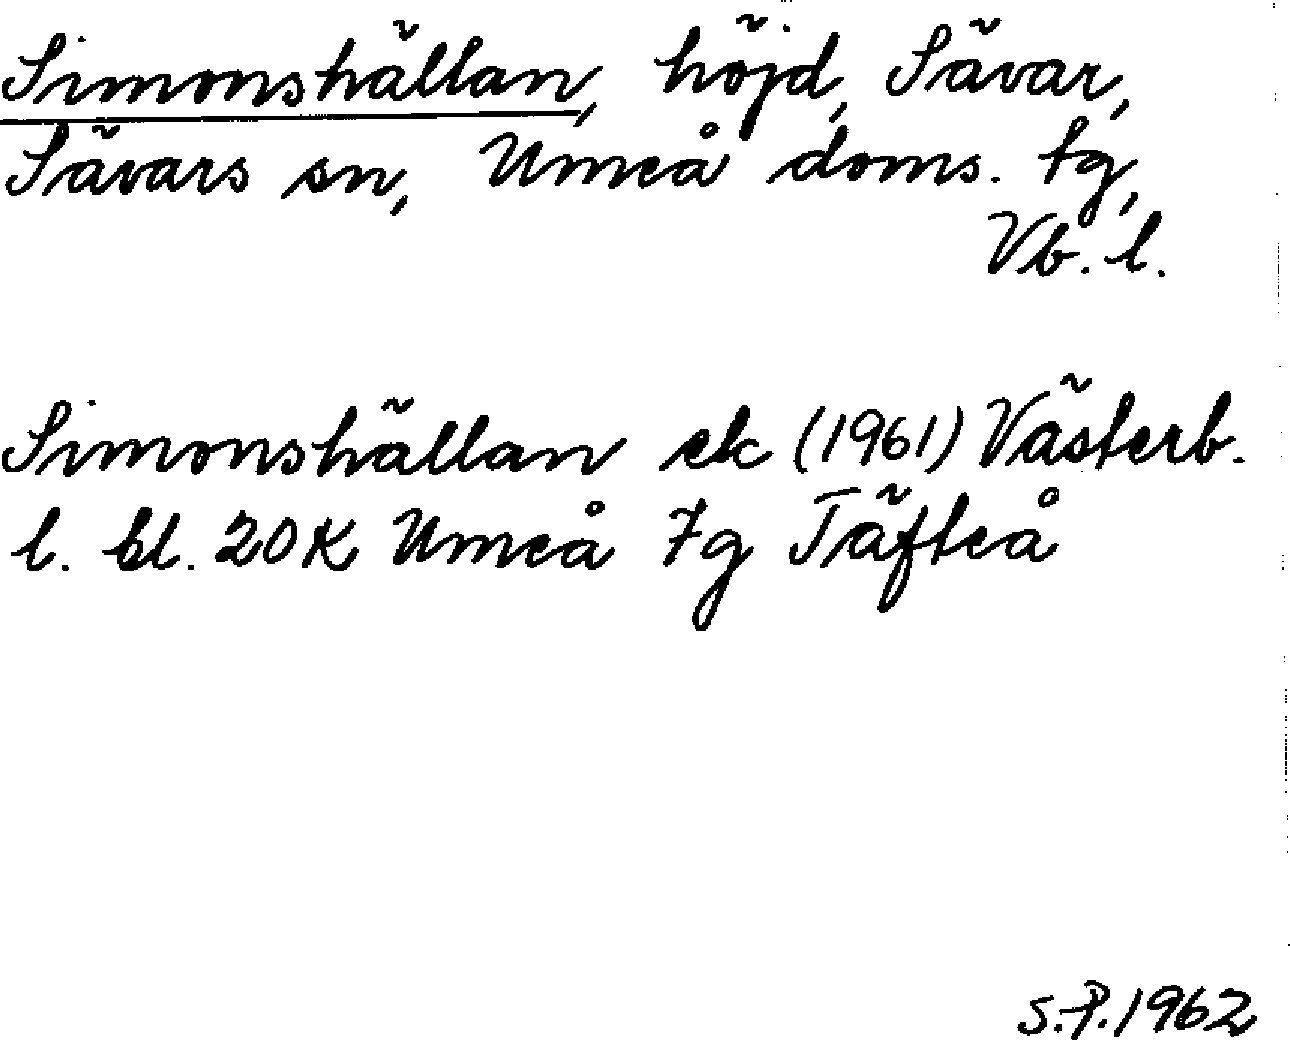 Simonshällan, höjd, Sävar,
Sävars sn, Umeå doms. tg,
Vb. l.
Simonshällan ek (1961) Västerb.
l. bl. 20K Umeå 7g Täfteå
S.P. 1962